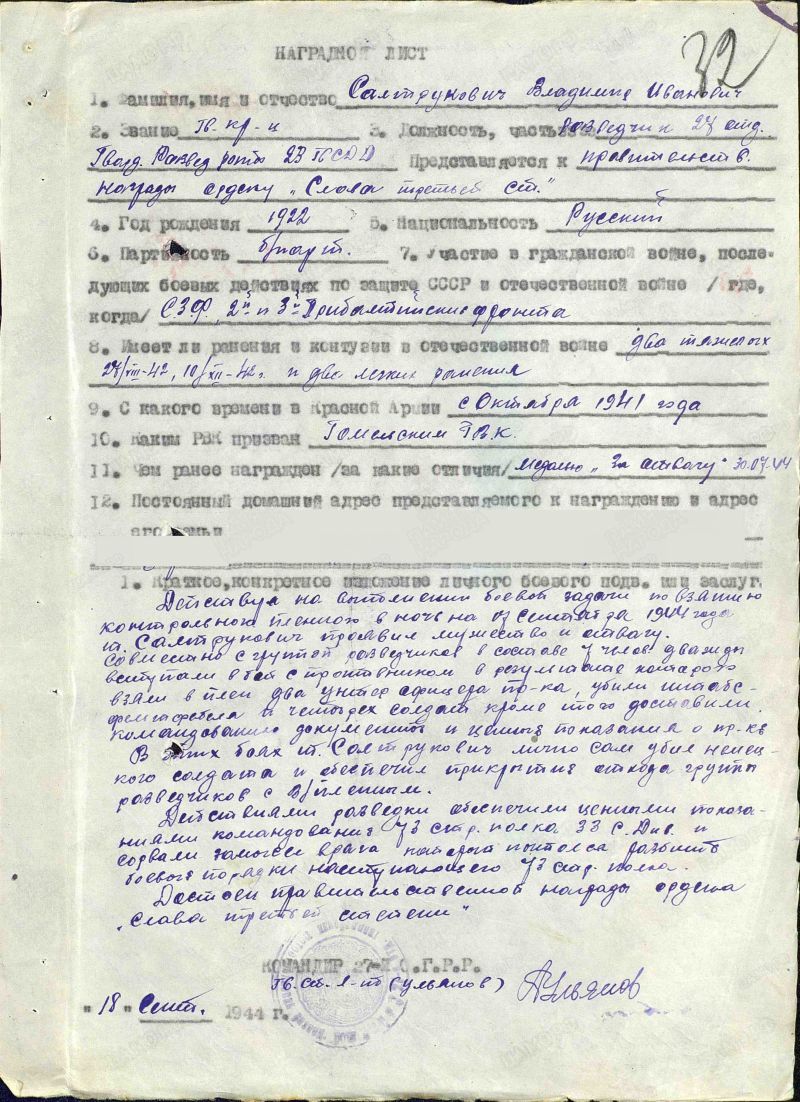 32
НАГРАДНОЙ ЛИСТ
1. Фамилия, имя и отчество Салтрукович Владимир Иванович
2. Звание Гв. кр-ц 3. Должность, часть разведчик 27 отд.
Гвард. Развед роты 23 ГвСДД Представляется к правительств.
награды ордену „Слава третьей ст."
4. Год рождения 1922 5. Национальность Русский
6. Партийность б/парт. 7. Участие в гражданской войне, после-
дующих боевых действиях по защите СССР и отечественной войне / где,
когда/ С.З.Ф., 2й и 3й Прибалтийские фронта
8. Имеет ли ранения и контузии в отечественной войне два тяжелых
27/VIII-42, 10/XII-42г. и два легких ранения
9. С какого времени в Красной Армии с Октября 1941 года
10. Каким РВК призван Гомельским Г.В.К.
11. Чем ранее награжден /за какие отличия/ медалью „За отвагу" 30.07.44
12. Постоянный домашний адрес представляемого к награждению и адрес
его семьи
1. Краткое, конкретное изложение личного боевого подв. или заслуг.
Действуя на выполнении боевой задачи по взятию
контрольного пленного в ночь на сентября 1944 года
т. Салтрукович проявил мужество и отвагу.
Совместно с группой разведчиков в составе 7 челов. дважды
вступали в бой с противником в результате которого
взяли в плен два унтер офицера пр-ка, убили штабс-
фельдфебеля и четырех солдат кроме того доставили
командованию документы и ценные показания о пр-ке
В этих боях т. Салтрукович лично сам убил немец-
кого солдата и обеспечил прикрытие отхода группы
разведчиков с в/пленным.
Действиями разведки обеспечили ценными показа-
ниями командования 73 стр. полка 33 С. Див. и
сорвали замысел врага который пытался разбить
боевые порядки наступающего 73 стр. полка.
Достоен правительственной награды ордена
„Слава третьей степени"
КОМАНДИР 27-Й О.Г.Р.Р.
Гв. ст. л-нт (Ульянов) АУльянов
"18" Сент. 1944 г.